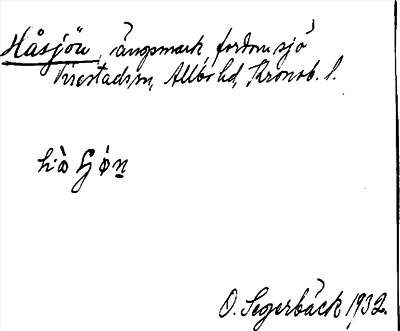 Håsjön, ängsmark, fordom sjö
Virestads sn, Allbo hd, Kronob. l.
O. Segerbäck 1932.